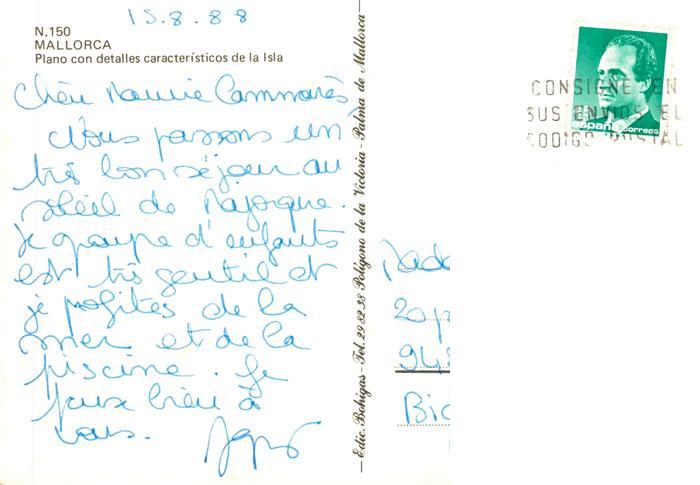 15.8.88
N.150
MALLORCA
Plano con detalles característicos de la Isla
Chère Mamie Cammarès
Nous passons un
très bon séjour au
soleil de Majorque.
Le groupe d'enfants
est très gentil et
je profites de la
mer et de la
piscine. Je
pense bien à
vous.
Edic. Bohigas - Tel. 29 82 38 Polígono de la Victoria - Palma de Mallorca
CONSIGNE EN
SUS ENVIOS EL
CODIGO POSTAL
españa correos
Mada
20
948
Bi